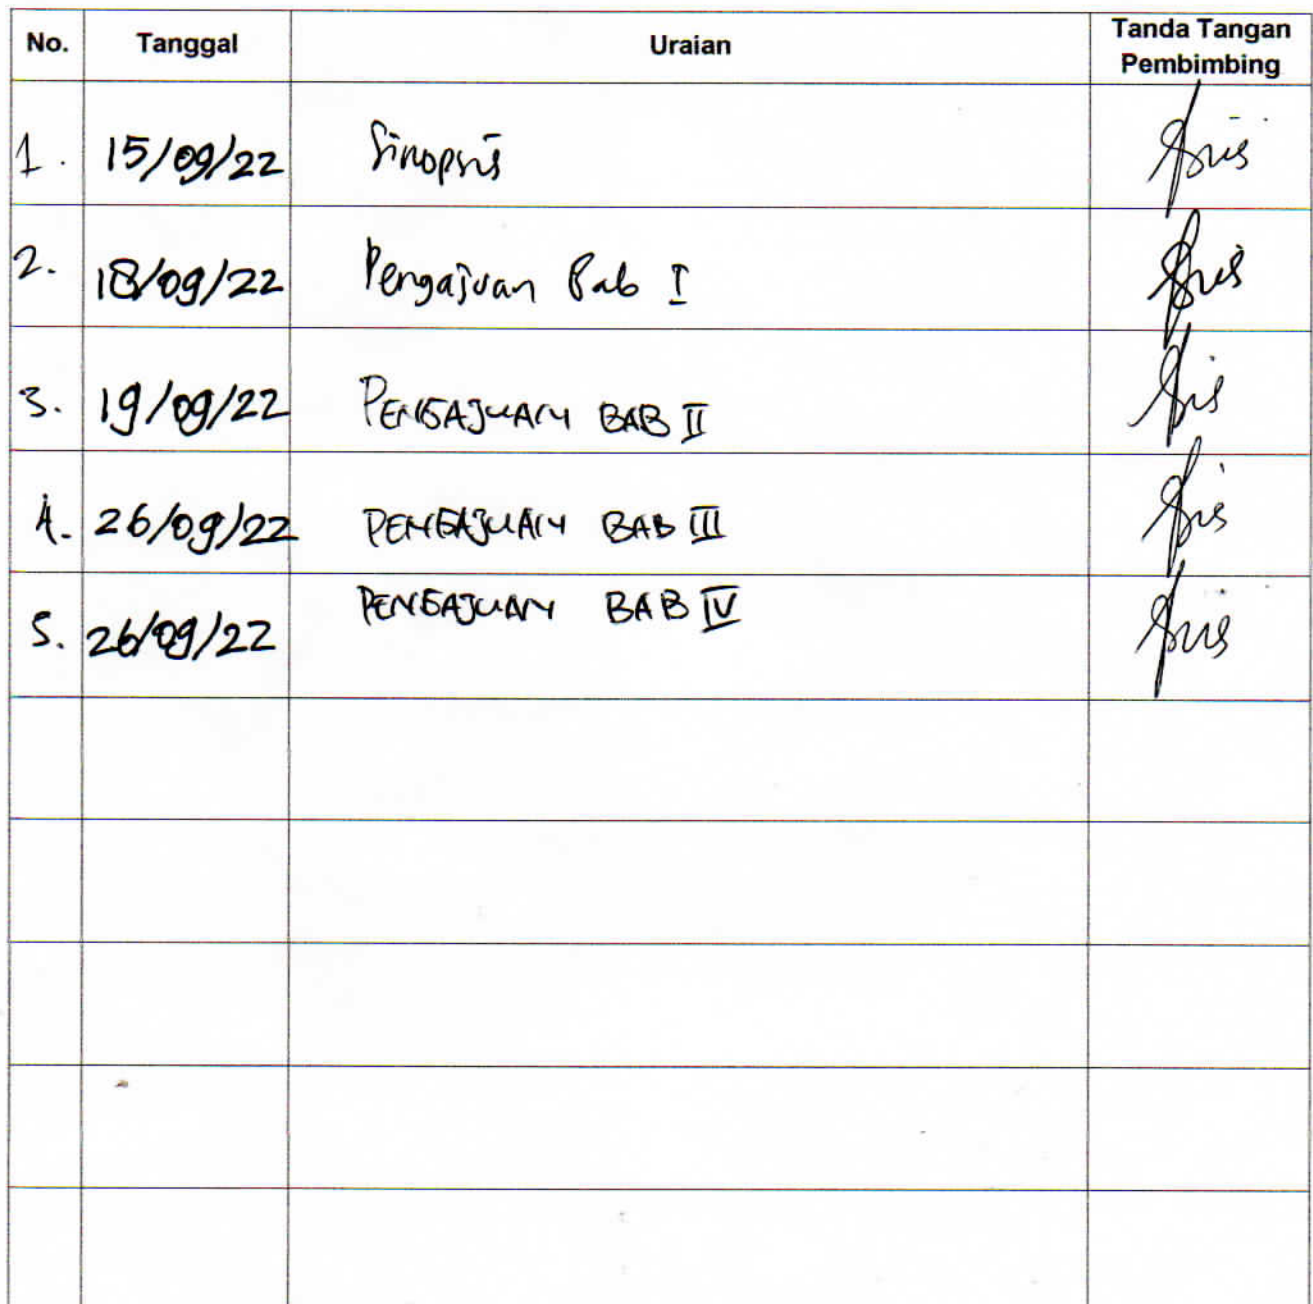 No. Tanggal Uraian Tanda Tangan Pembimbing
1. 15/09/22 Sinopsis
2. 18/09/22 Pengajuan Bab I
3. 19/09/22 PENGAJUAN BAB II
4. 26/09/22 PENGAJUAN BAB III
5. 26/09/22 PENGAJUAN BAB IV